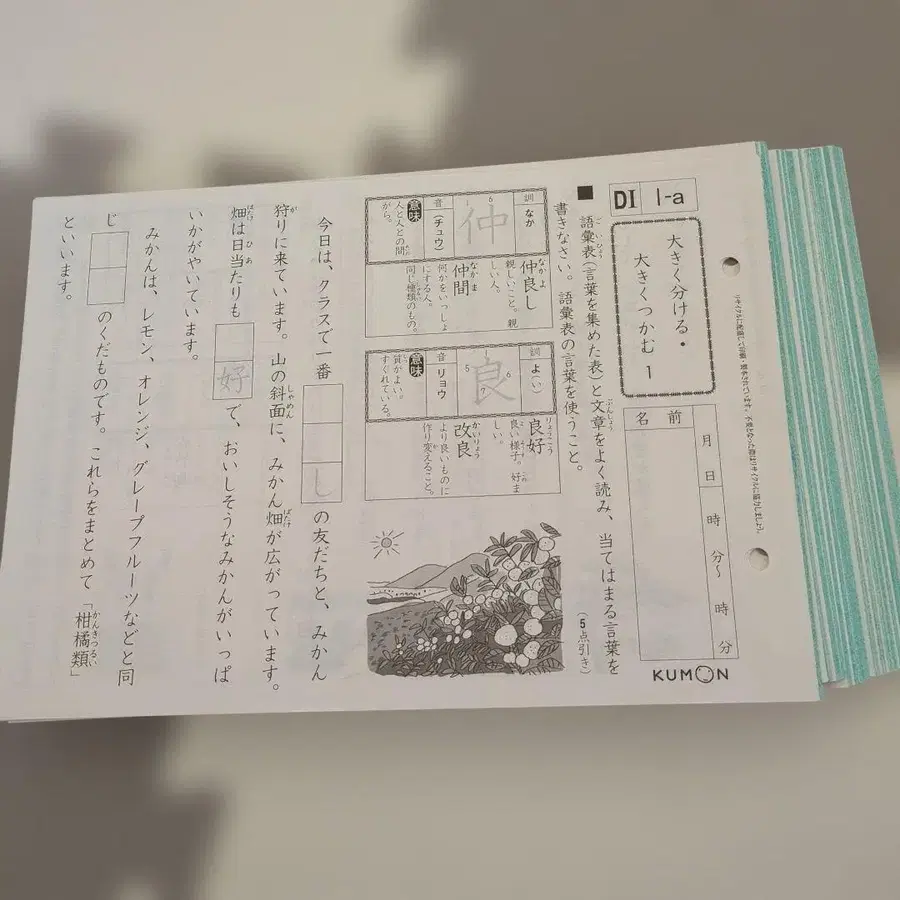 DI 1-a
大きく分ける・
大きくつかむ 1
月 日 時 分〜 時 分
名前
KUMON
■ 語彙表(言葉を集めた表)と文章をよく読み、当てはまる言葉を
書きなさい。語彙表の言葉を使うこと。
(5点引き)
訓 なか
仲
音 (チュウ)
意味 人と人との間
がら。
仲良し
親しいこと。親
しい人。
仲間
何かをいっしょ
にする人。
同じ種類のもの。
訓 よ(い)
良
音 リョウ
意味 質がよい。
すぐれている。
良好
良い様子。好ま
しい。
改良
より良いものに
作り変えること。
今日は、クラスで一番 し の友だちと、みかん
狩りに来ています。山の斜面に、みかん畑が広がっています。
畑は日当たりも 好 で、おいしそうなみかんがいっぱ
いかがやいています。
みかんは、レモン、オレンジ、グレープフルーツなどと同
じ のくだものです。これらをまとめて「柑橘類」
といいます。